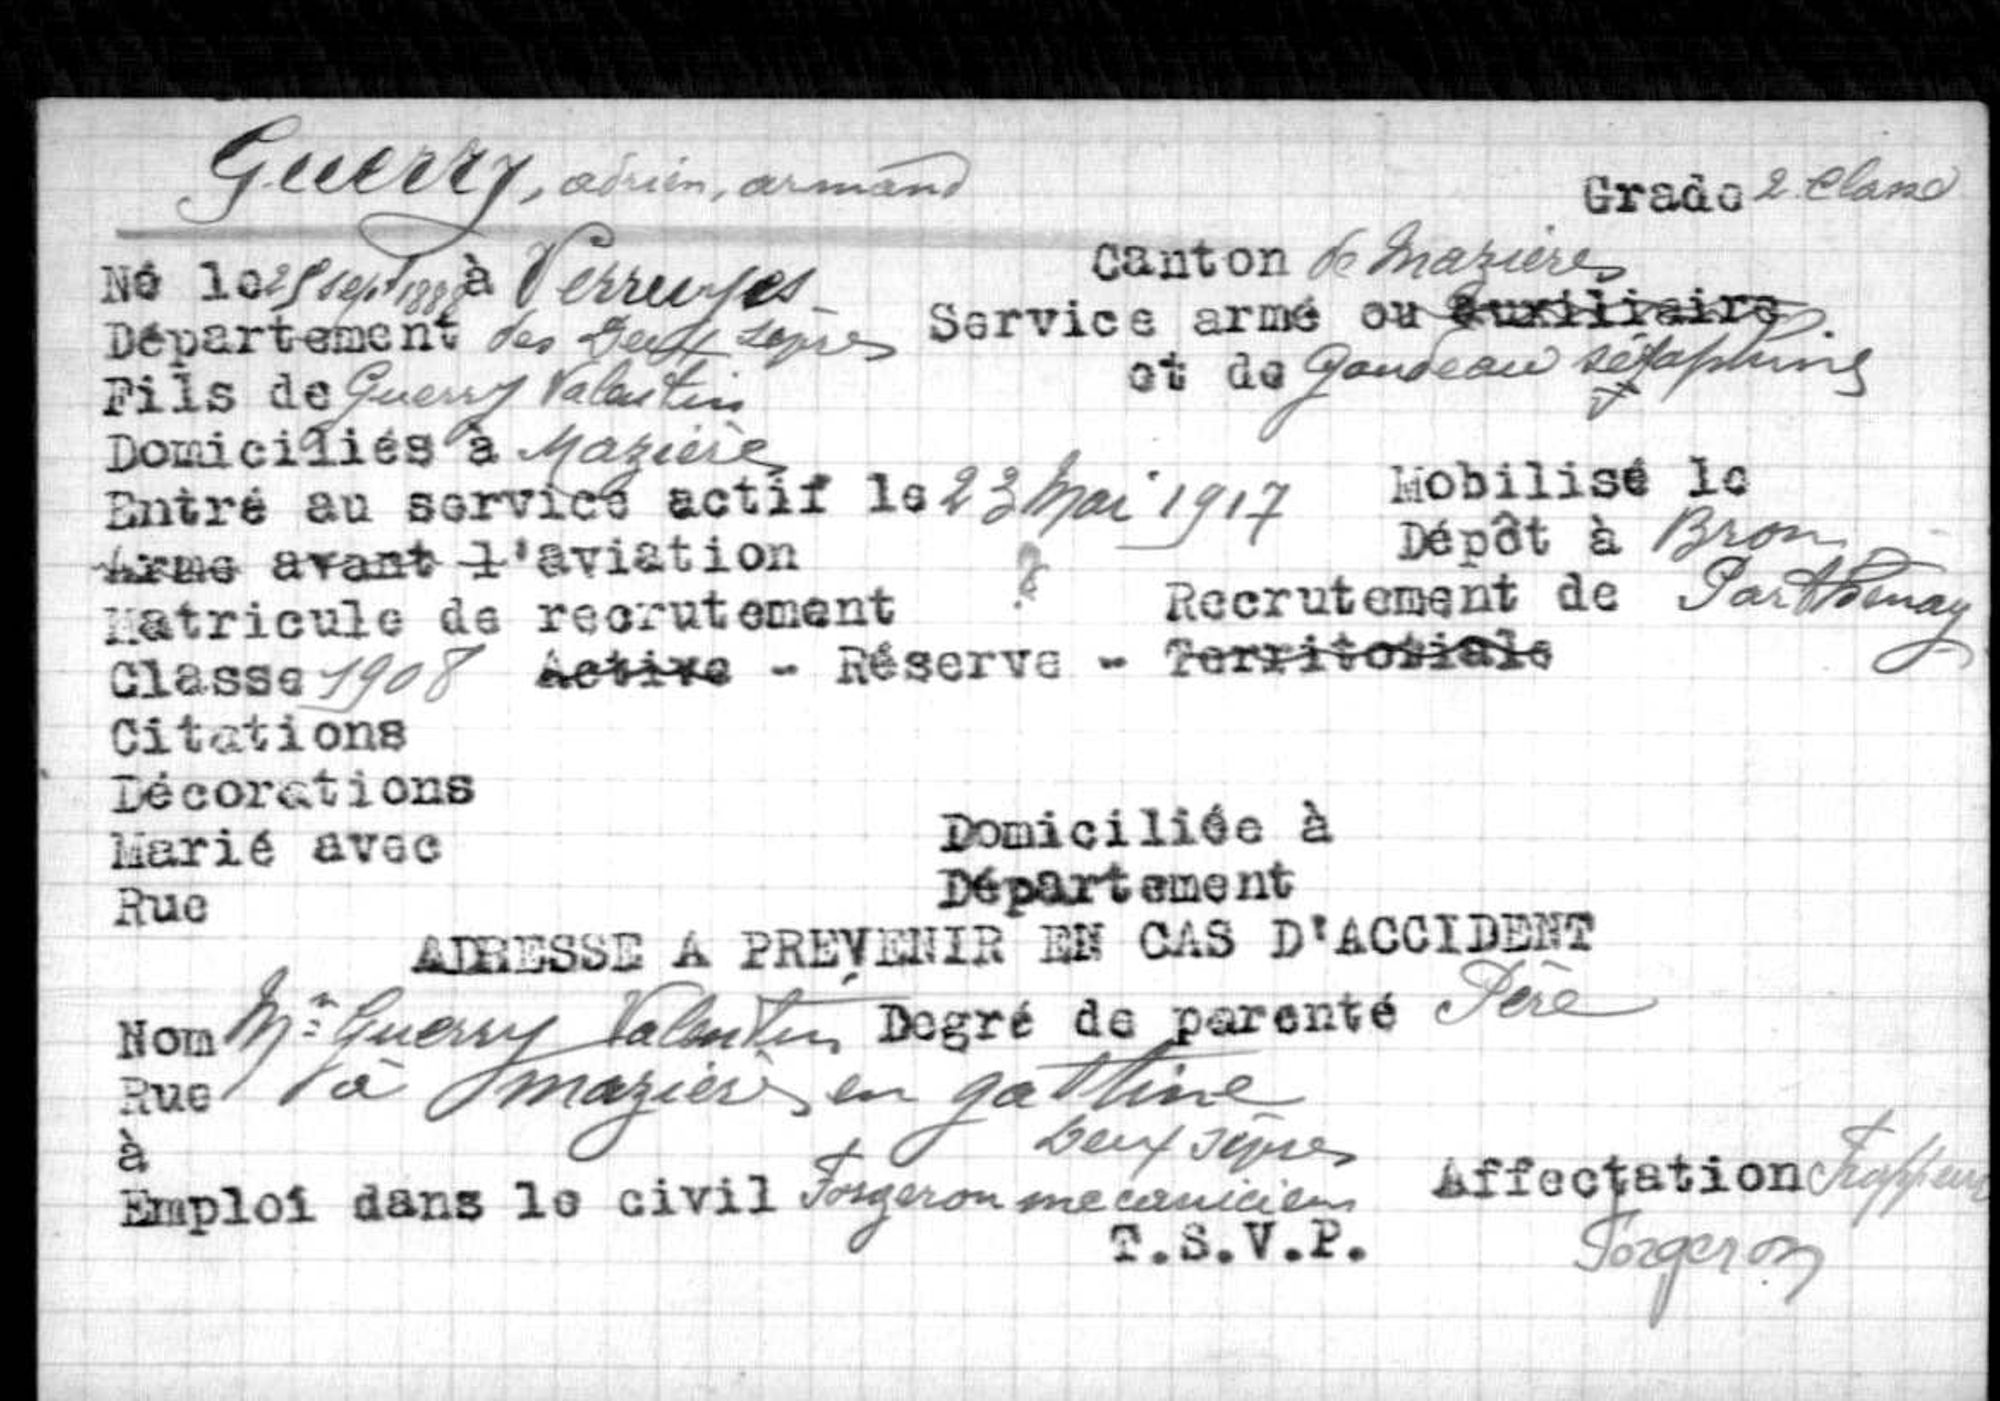 Guerry, adrien, armand
Grade 2. Classe
Né le 25 sept 1888 à Verruyes
Canton de Mazières
Département des Deux Sèvres
Service armé ou auxiliaire
Fils de Guerry Valentin
et de Gaudeau séraphine
Domiciliés à Mazière
Entré au service actif le 23 Mai 1917
Mobilisé le
Arme avant l'aviation
Dépôt à Bron
Matricule de recrutement ?
Recrutement de Parthenay
Classe 1908 Active - Réserve - Territoriale
Citations
Décorations
Marié avec
Domiciliée à
Rue
Département
ADRESSE A PREVENIR EN CAS D'ACCIDENT
Nom Mr Guerry Valentin Degré de parenté Père
Rue à mazières en gattine
à Deux Sèvres
Emploi dans le civil Forgeron mecanicien
Affectation Frappeur
Forgeron
T.S.V.P.